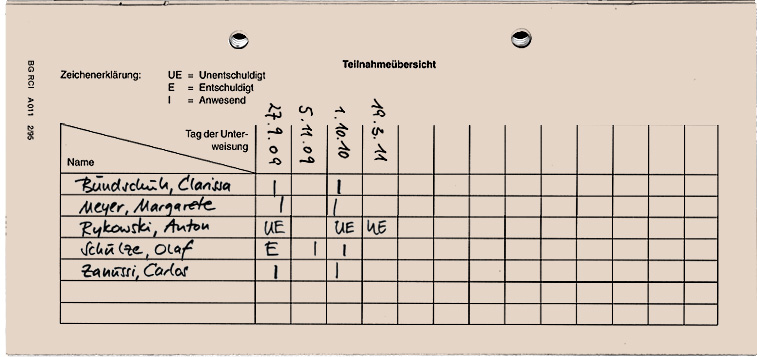 Teilnahmeübersicht
Zeichenerklärung: UE = Unentschuldigt
E = Entschuldigt
I = Anwesend
BG RCI A011 2/95
Tag der Unter-
weisung
Name
27.9.09 5.11.09 1.10.10 19.3.11
Bundschuh, Clarissa I I
Meyer, Margarete I I
Rykowski, Anton UE UE UE
Schulze, Olaf E I I
Zanussi, Carlos I I